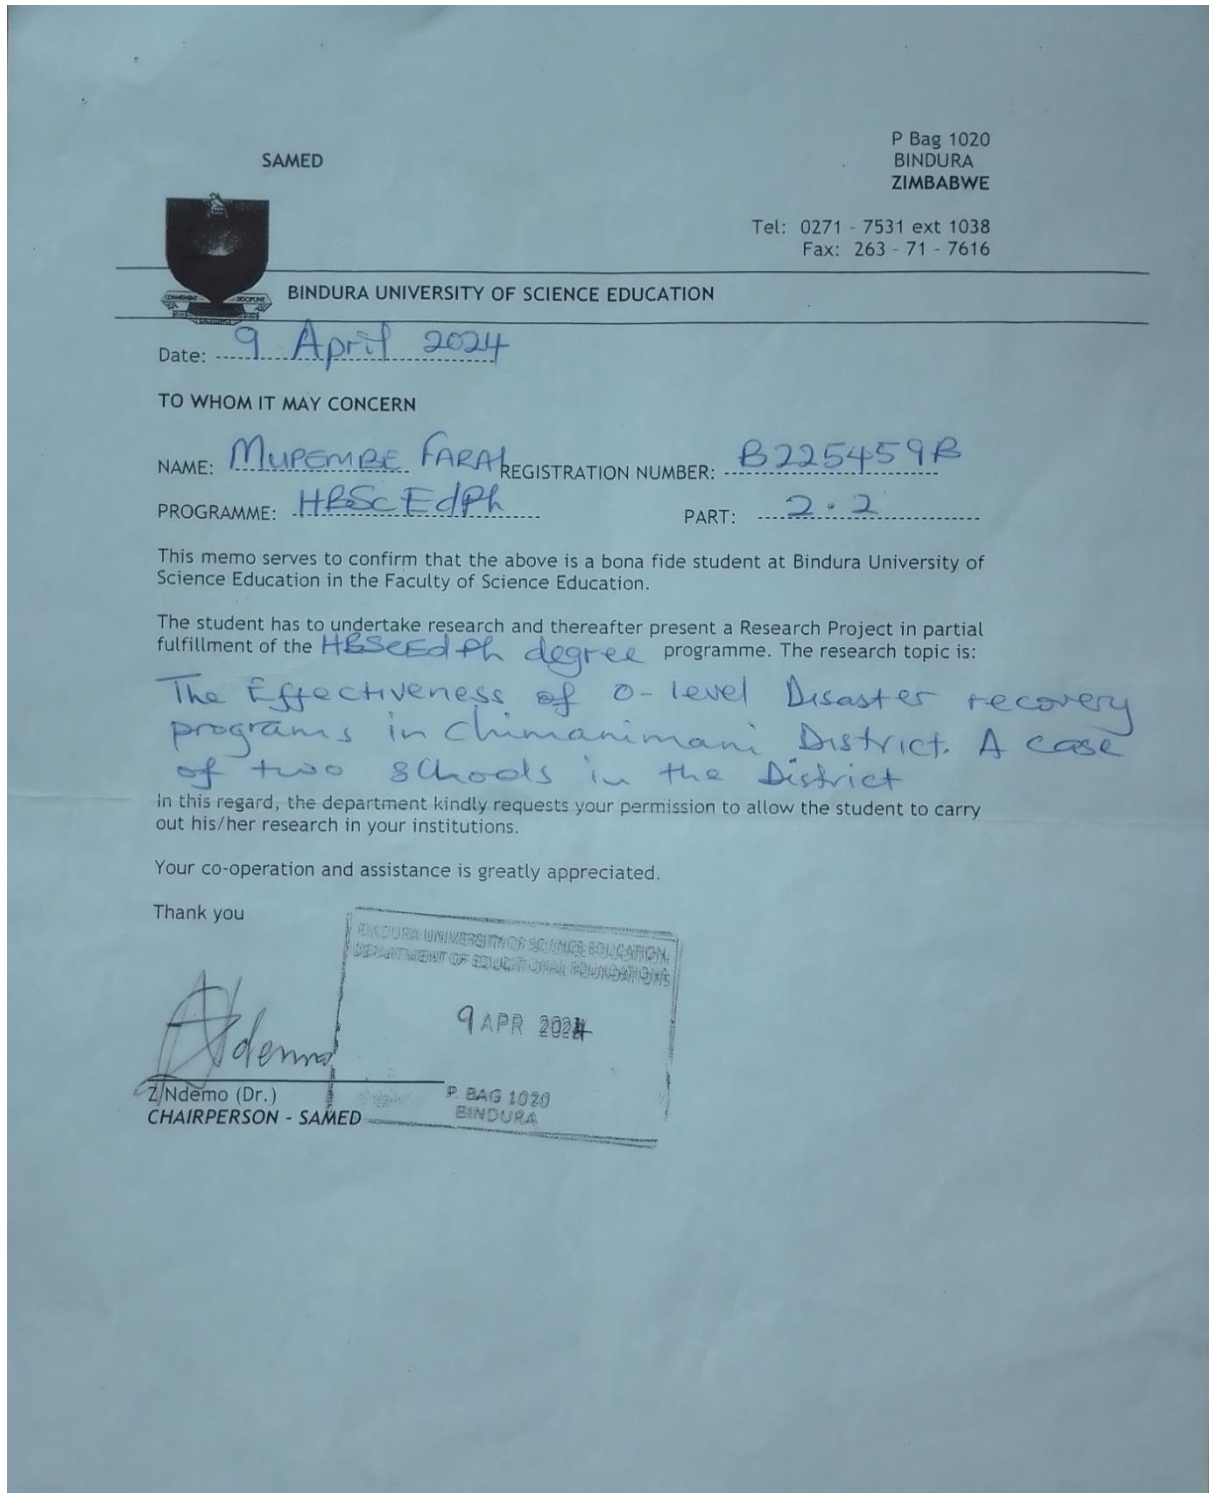 SAMED
P Bag 1020
BINDURA
ZIMBABWE
Tel: 0271 - 7531 ext 1038
Fax: 263 - 71 - 7616
BINDURA UNIVERSITY OF SCIENCE EDUCATION
Date: 9 April 2024
TO WHOM IT MAY CONCERN
NAME: MUPEMBE FARAI REGISTRATION NUMBER: B225459B
PROGRAMME: HBSc EdPh PART: 2.2
This memo serves to confirm that the above is a bona fide student at Bindura University of
Science Education in the Faculty of Science Education.
The student has to undertake research and thereafter present a Research Project in partial
fulfillment of the HBScEdPh degree programme. The research topic is:
The Effectiveness of O-level Disaster recovery
programs in Chimanimani District. A case
of two schools in the District
In this regard, the department kindly requests your permission to allow the student to carry
out his/her research in your institutions.
Your co-operation and assistance is greatly appreciated.
Thank you
BINDURA UNIVERSITY OF SCIENCE EDUCATION
DEPARTMENT OF EDUCATIONAL FOUNDATIONS
9 APR 2024
Z Ndemo (Dr.)
P. BAG 1020
BINDURA
CHAIRPERSON - SAMED